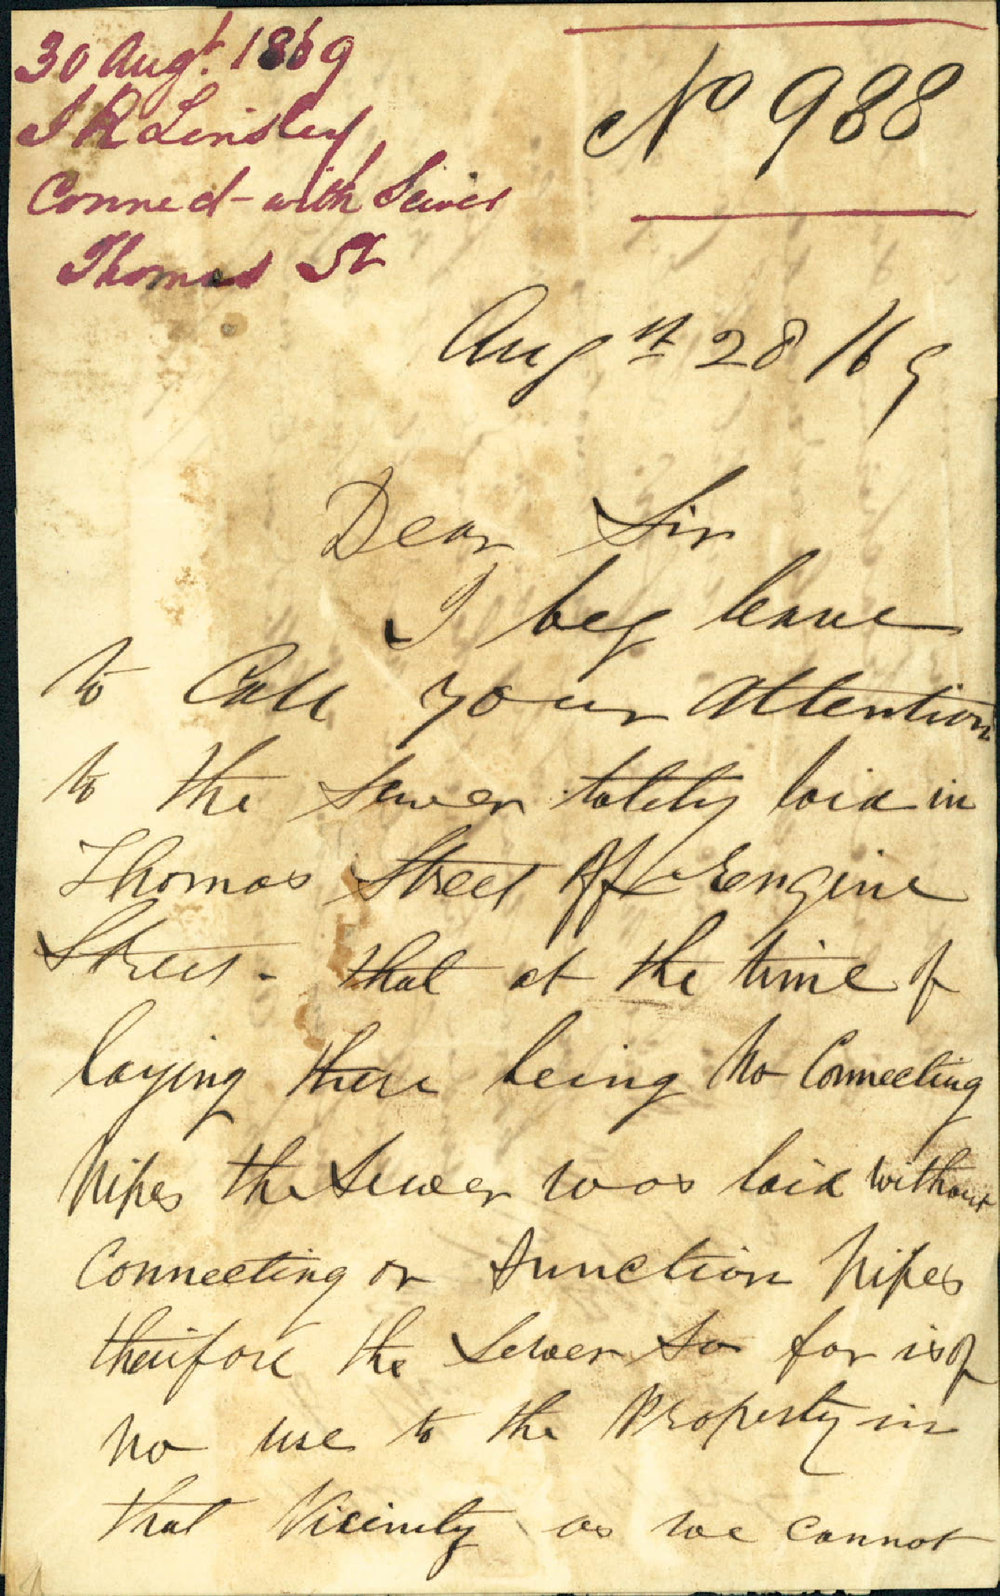 30 Augt. 1869
J R Linsley
Connect - with Sewer
Thomas St
No 988
Augst 28 /69
Dear Sir
I beg leave
to Call your attention
to the Sewer laid in
Thomas Street off Engine
Street - that at the time of
laying there being No Connecting
Pipes the Sewer was laid without
Connecting or Junction Pipes
theirfore the Sewer so far is of
no use to the Property in
that Vicinity as we cannot